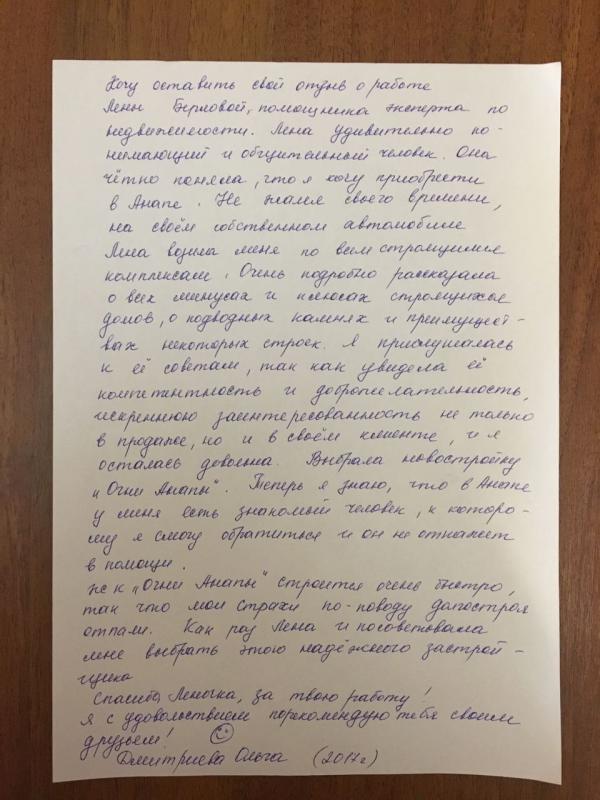 Хочу оставить свой отзыв о работе
Лены Берловой, помощника эксперта по
недвижимости. Лена удивительно по-
нимающий и общительный человек. Она
чётко поняла, что я хочу приобрести
в Анапе. Не жалея своего времени,
на своём собственном автомобиле
Лена возила меня по всем строящимся
комплексам. Очень подробно рассказала
о всех минусах и плюсах строящихся
домов, о подводных камнях и преимущест-
вах некоторых строек. Я прислушалась
к её советам, так как увидела её
компетинтность и доброжелательность,
искреннюю заинтересованность не только
в продаже, но и в своём клиенте, и я
осталась довольна. Выбрала новостройку
"Огни Анапы". Теперь я знаю, что в Анапе
у меня есть знакомый человек, к которо-
му я смогу обратиться и он не откажет
в помощи.
ЖК "Огни Анапы" строится очень быстро,
так что мои страхи по-поводу долгостроя
отпали. Как раз Лена и посоветовала
мне выбрать этого надёжного застрой-
щика
Спасибо, Леночка, за твою работу!
Я с удовольствием порекомендую тебя своим
друзьям!
Дмитриева Ольга (2017г)